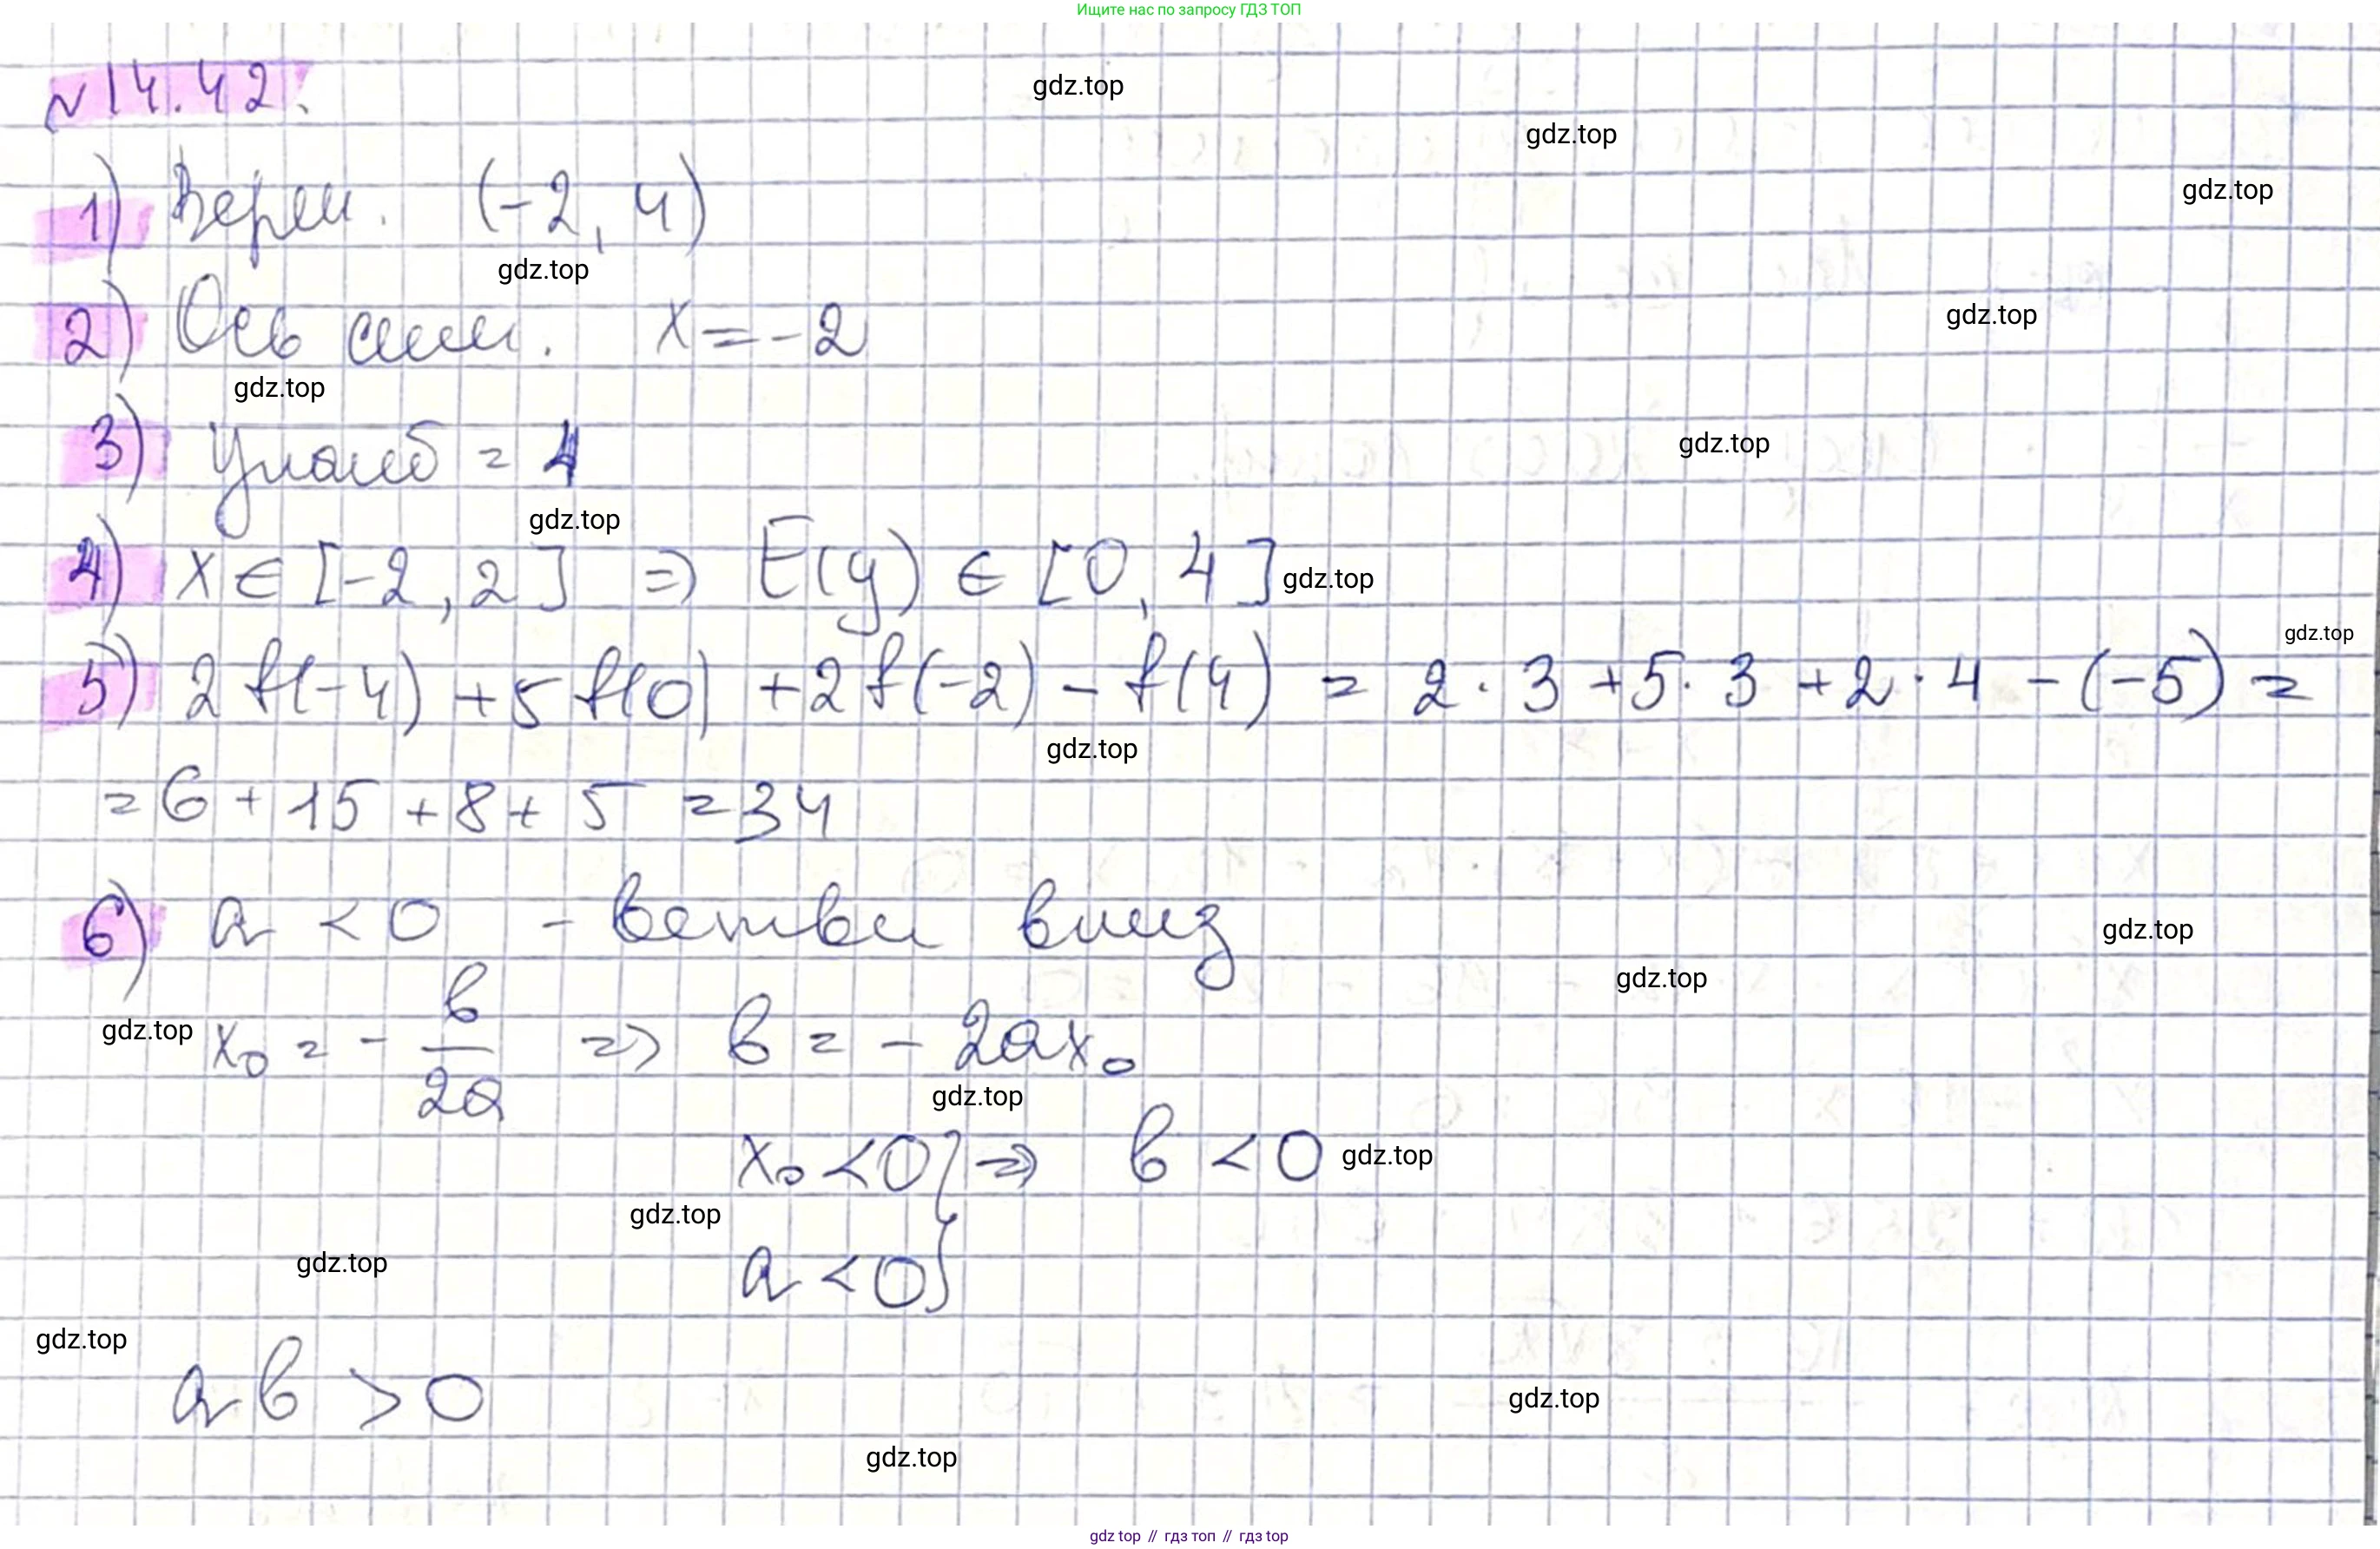 Ищите нас по запросу ГДЗ ТОП
N 14.42.
gdz.top
gdz.top
gdz.top
1) Верш. (-2, 4)
gdz.top
gdz.top
2) Ось сим. x = -2
gdz.top
gdz.top
3) yнаиб = 4
gdz.top
4) x ∈ [-2, 2] => E(y) ∈ [0, 4]
gdz.top
gdz.top
5) 2f(-4) + 5f(0) + 2f(-2) - f(4) = 2·3 + 5·3 + 2·4 - (-5) =
gdz.top
= 6 + 15 + 8 + 5 = 34
6) a < 0 - ветви вниз
gdz.top
gdz.top
gdz.top
x₀ = - в/2a => в = - 2ax₀
gdz.top
x₀ < 0 } => в < 0
gdz.top
gdz.top
a < 0 }
gdz.top
gdz.top
aв > 0
gdz.top
gdz.top
gdz top // гдз топ // гдз top